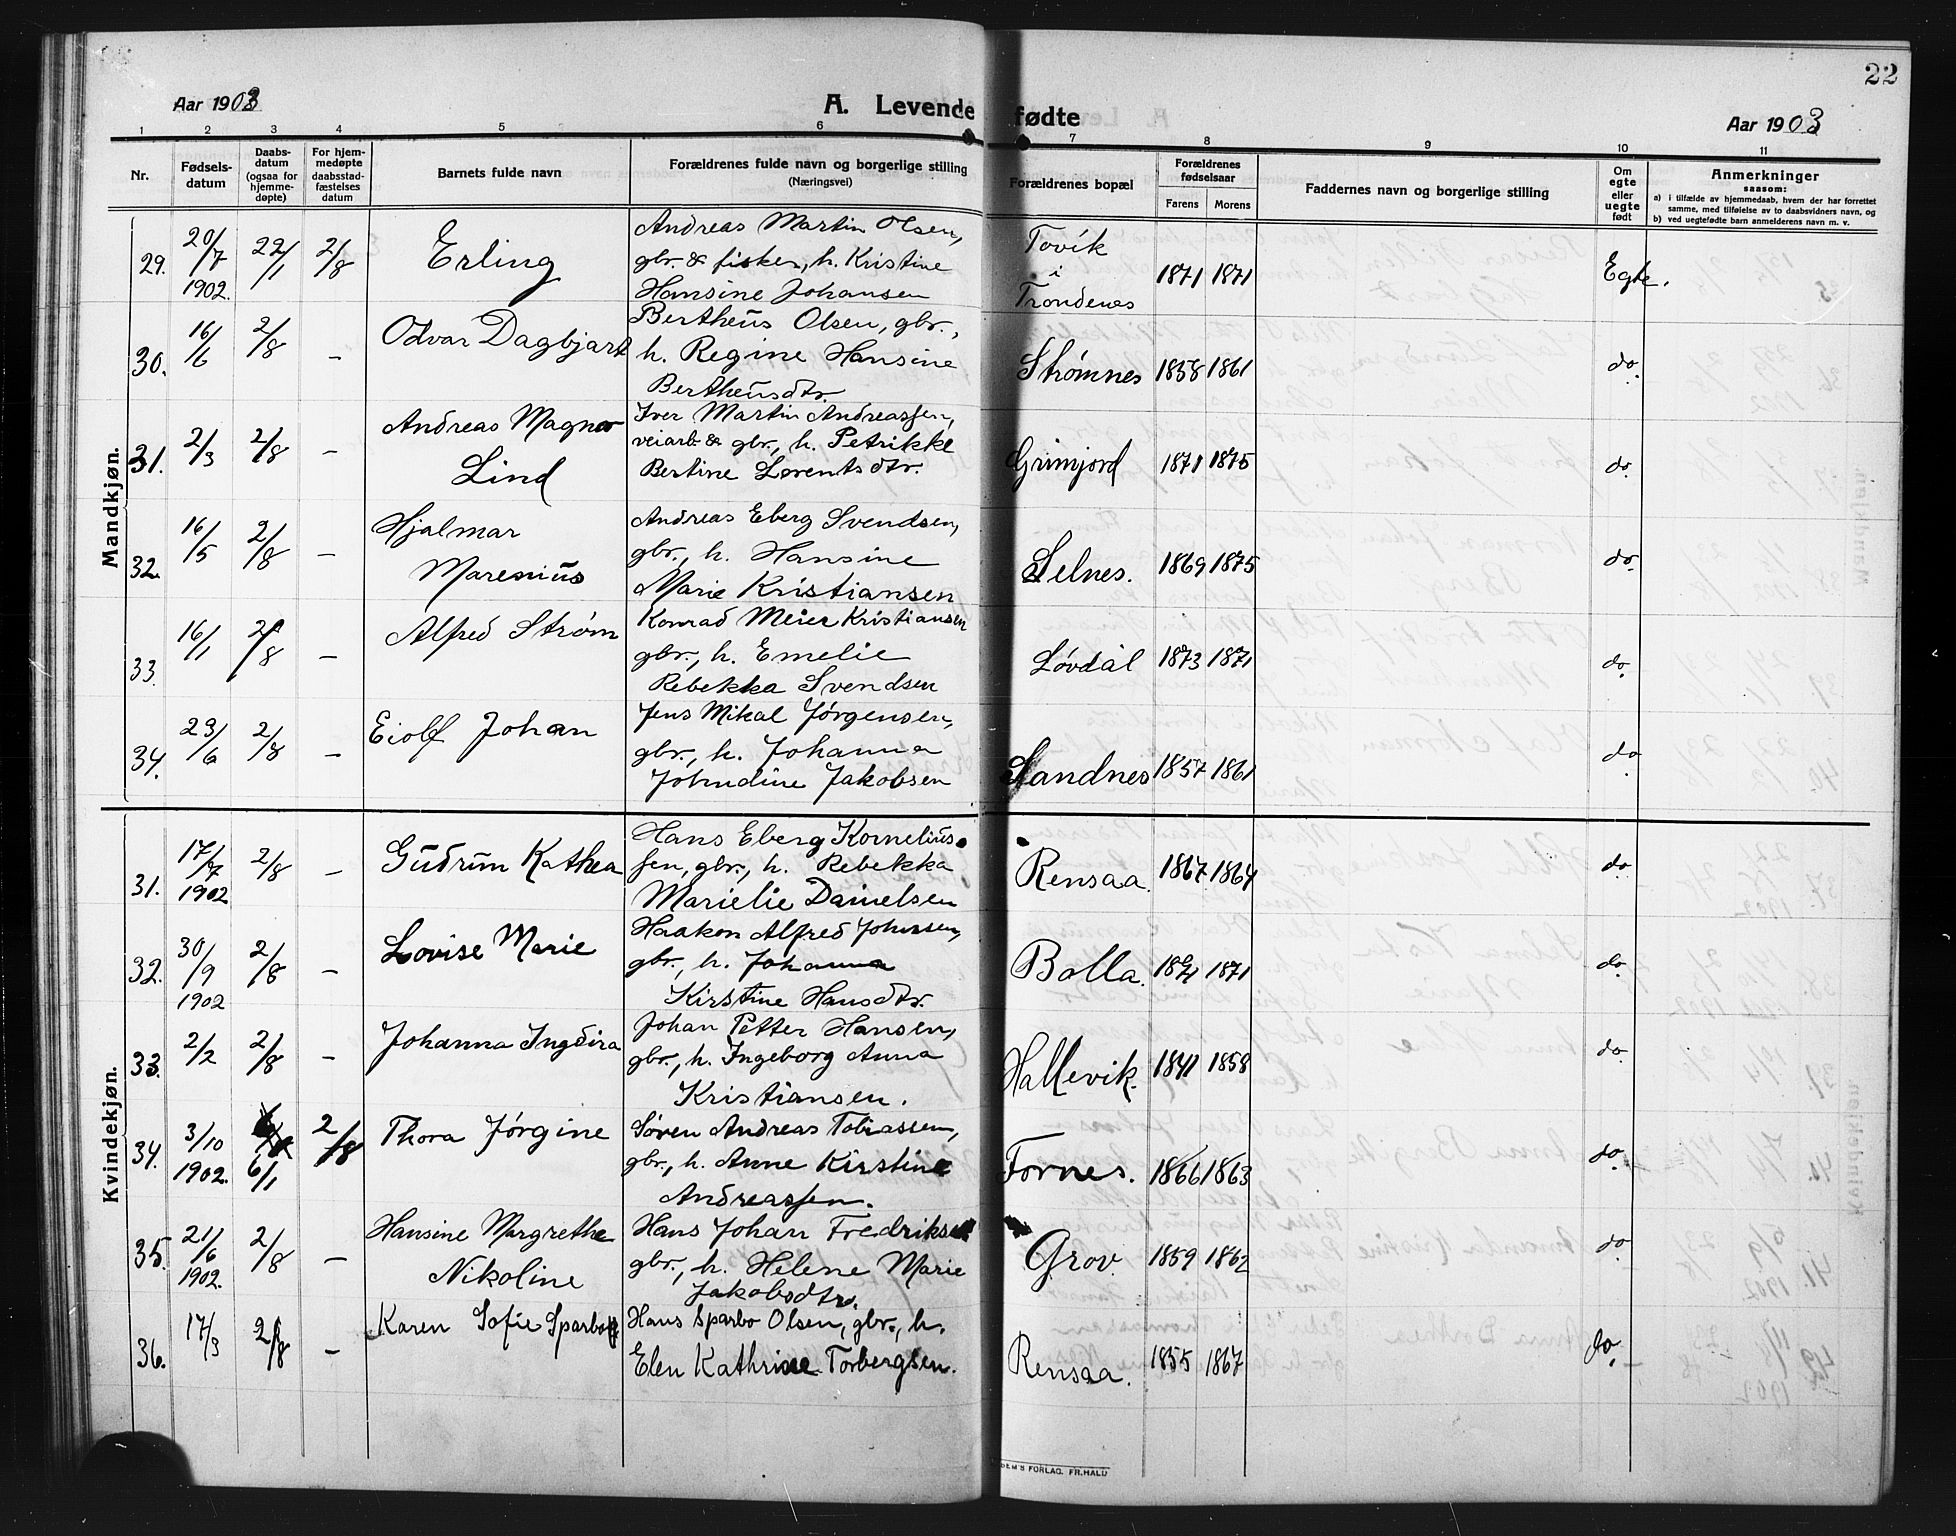 22
Aar 1903
A. Levende fødte
Aar 1903
1 2 3 4 5 6 7 8 9 10 11
Nr.
Fødsels-
datum
Daabs-
datum
(ogsaa for
hjemme-
døpte)
For hjem-
medøpte
daabsstad-
fæstelses
datum
Barnets fulde navn
Forældrenes fulde navn og borgerlige stilling
(Næringsvei)
Forældrenes bopæl
Forældrenes
fødselsaar
Farens Morens
Faddernes navn og borgerlige stilling
Om
egte
eller
uegte
født
Anmerkninger
saasom:
a) i tilfælde av hjemmedaab, hvem der har forrettet
samme, med tilføielse av to daabsvidners navn, og
b) ved uegtefødte barn anmelderens navn m. v.
Mandkjøn.
29. 20/7 1902. 22/1 2/8 Erling
Andreas Martin Olsen,
gbr. & fisker, h. Kristine
Hansine Johansen
Tovik
i
Trondenes
1871 1871 Egte.
30. 16/6 2/8 – Odvar Dagbjart
Bertheus Olsen, gbr.,
h. Regine Hansine
Bertheusdtr.
Strømnes 1858 1861 do.
31. 2/3 2/8 – Andreas Magnor
Lind
Iver Martin Andreassen,
veiarb. & gbr., h. Petrikke
Bertine Lorentsdtr.
Grimjord 1871 1875 do.
32. 16/5 2/8 – Hjalmar
Marenius
Andreas Eberg Svendsen,
gbr., h. Hansine
Marie Kristiansen
Selnes. 1869 1875 do.
33. 16/1 2/8 – Alfred Strøm
Konrad Meier Kristiansen
gbr., h. Emelie
Rebekka Svendsen
Løvdal 1873 1871 do.
34. 23/6 2/8 – Eiolf Johan
Jens Mikal Jørgensen,
gbr., h. Johanna
Johndine Jakobsen
Sandnes 1857 1861 do
Kvindekjøn.
31. 17/7 1902 2/8 – Gudrun Kathea
Hans Eberg Kornelius-
sen, gbr., h. Rebekka
Marielie Danielsen
Rensaa. 1867 1864 do.
32. 30/9 1902 2/8 – Lovise Marie
Haakon Alfred Johnsen,
gbr., h. Johanna
Kirstine Hansdtr.
Bolla. 1871 1871 do.
33. 2/2 2/8 – Johanna Ingdira
Johan Petter Hansen,
gbr., h. Ingeborg Anna
Kristiansen.
Hallevik. 1841 1858 do.
34. 3/10 1902. 6/1 2/8 Thora Jørgine
Søren Andreas Tobiassen,
gbr., h. Anne Kirstine
Andreassen.
Fornes. 1866 1863 do.
35. 21/6 1902. 2/8 – Hansine Margrethe
Nikoline
Hans Johan Fredriksen
gbr., h. Helene Marie
Jakobsdtr.
Grov. 1859 1862 do.
36. 17/3 2/8 – Karen Sofie Sparbog
Hans Sparbo Olsen, gbr., h.
Elen Kathrine Torbergsen.
Rensaa. 1855 1867 do.
FORLAG. FR.HALD